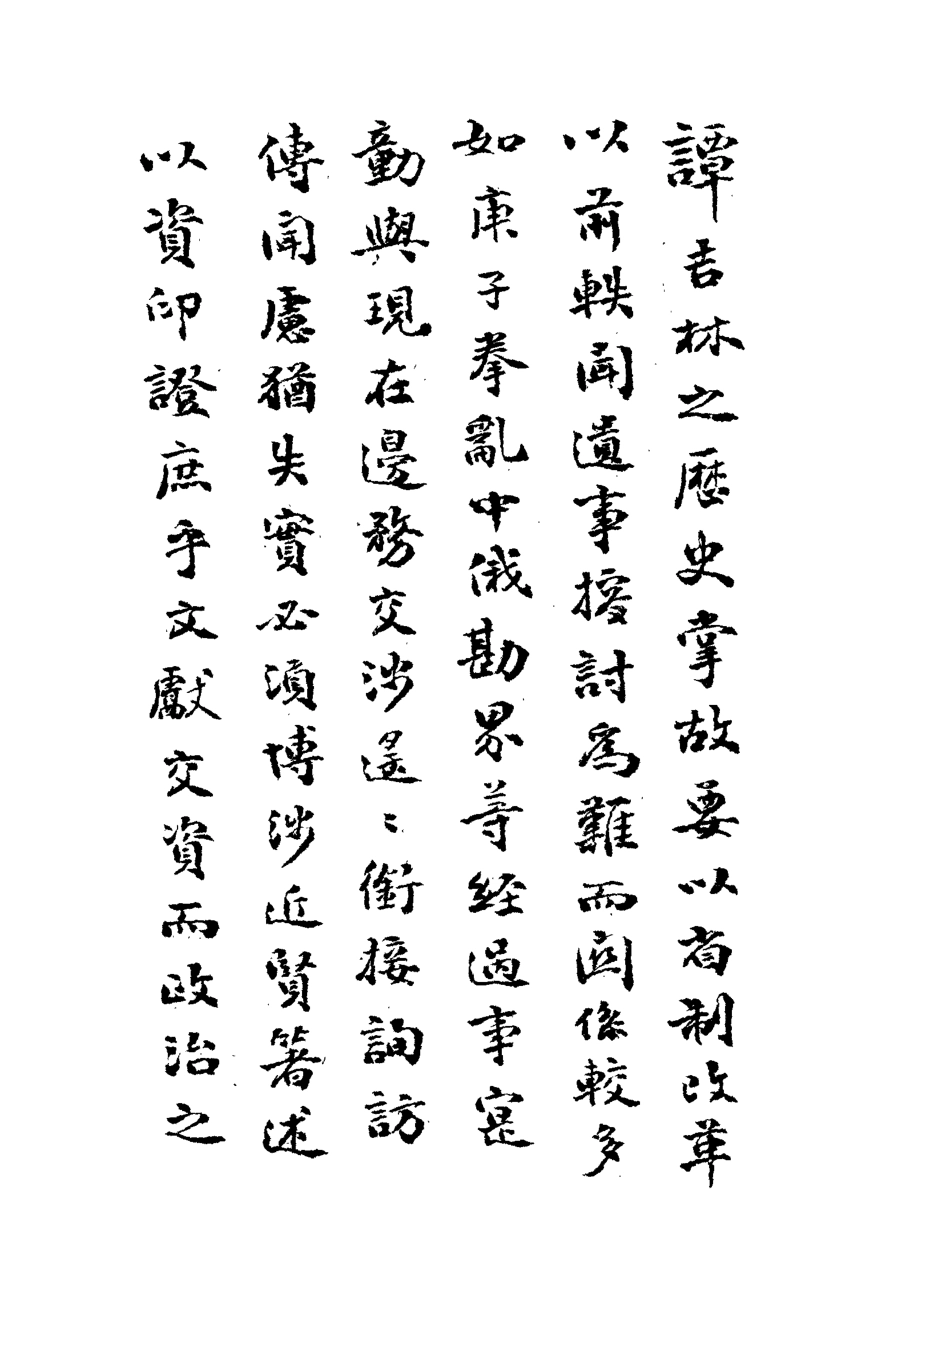 譚吉林之歷史掌故要以省制改革
以前軼聞遺事搜討爲難而関係較多
如庚子拳亂中俄勘界等経過事寔
動與現在邊務交涉遥〻銜接詢訪
傳聞慮猶失實必須博涉近賢箸述
以資印證庶乎文獻交資而政治之